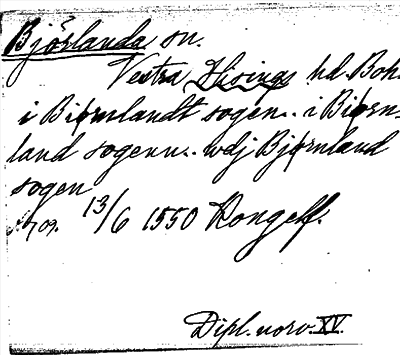 Björlanda sn.
Vestra Hisings hd. Boh.
i Biørnlandt sogen.. i Biørn-
land sogenn.. wdj Bjørnland
sogen
s. 709. 13/6 1550 Kongelf.
Dipl. norv. XV.